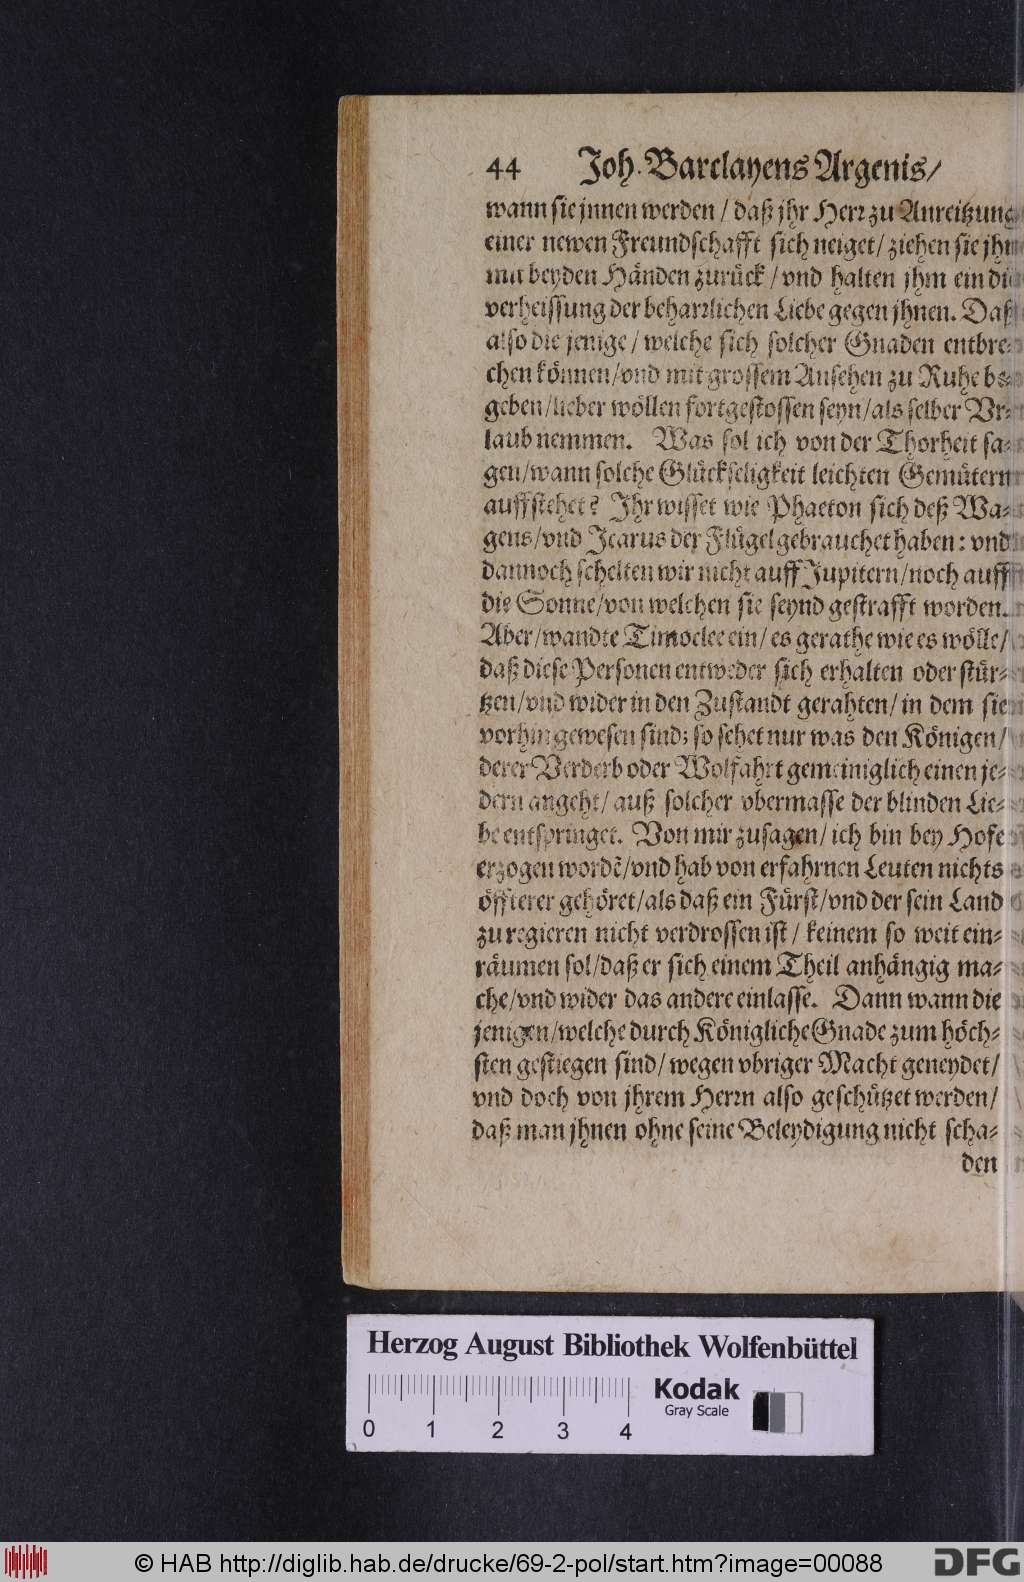 44 Joh. Barclayens Argenis/
wann sie jnnen werden / daß jhr Herr zu Anreitzung
einer newen Freundschafft sich neiget/ ziehen sie jhn
mit beyden Händen zurück / vnd halten jhm ein die
verheissung der beharrlichen Liebe gegen jhnen. Daß
also die jenige / welche sich solcher Gnaden entbre-
chen können/vnd mit grossem Ansehen zu Ruhe be-
geben/lieber wöllen fortgestossen seyn/als selber Vr-
laub nemmen. Was sol ich von der Thorheit sa-
gen/wann solche Glückseligkeit leichten Gemütern
auffstehet? Ihr wisset wie Phaeton sich deß Wa-
gens/vnd Icarus der Flügel gebrauchet haben: vnd
dannoch schelten wir nicht auff Jupitern/noch auff
die Sonne/von welchen sie seynd gestrafft worden.
Aber/wandte Timoclee ein/ es gerathe wie es wölle/
daß diese Personen entweder sich erhalten oder stür-
tzen/vnd wider in den Zustandt gerahten/ in dem sie
vorhin gewesen sind; so sehet nur was den Königen/
derer Verderb oder Wolfahrt gemeiniglich einen je-
dern angeht/ auß solcher vbermasse der blinden Lie-
be entspringet. Von mir zusagen/ ich bin bey Hofe
erzogen wordē/vnd hab von erfahrnen Leuten nichts
öffterer gehöret/als daß ein Fürst/vnd der sein Land
zu regieren nicht verdrossen ist / keinem so weit ein-
räumen sol/daß er sich einem Theil anhängig ma-
che/vnd wider das andere einlasse. Dann wann die
jenigen/welche durch Königliche Gnade zum höch-
sten gestiegen sind/ wegen vbriger Macht geneydet/
vnd doch von jhrem Herrn also geschützet werden/
daß man jhnen ohne seine Beleydigung nicht scha-
den
Herzog August Bibliothek Wolfenbüttel
Kodak
Gray Scale
0 1 2 3 4
© HAB http://diglib.hab.de/drucke/69-2-pol/start.htm?image=00088
DFG